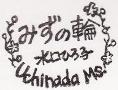 みずの輪
水口ひろ子
Uchinada Ms.